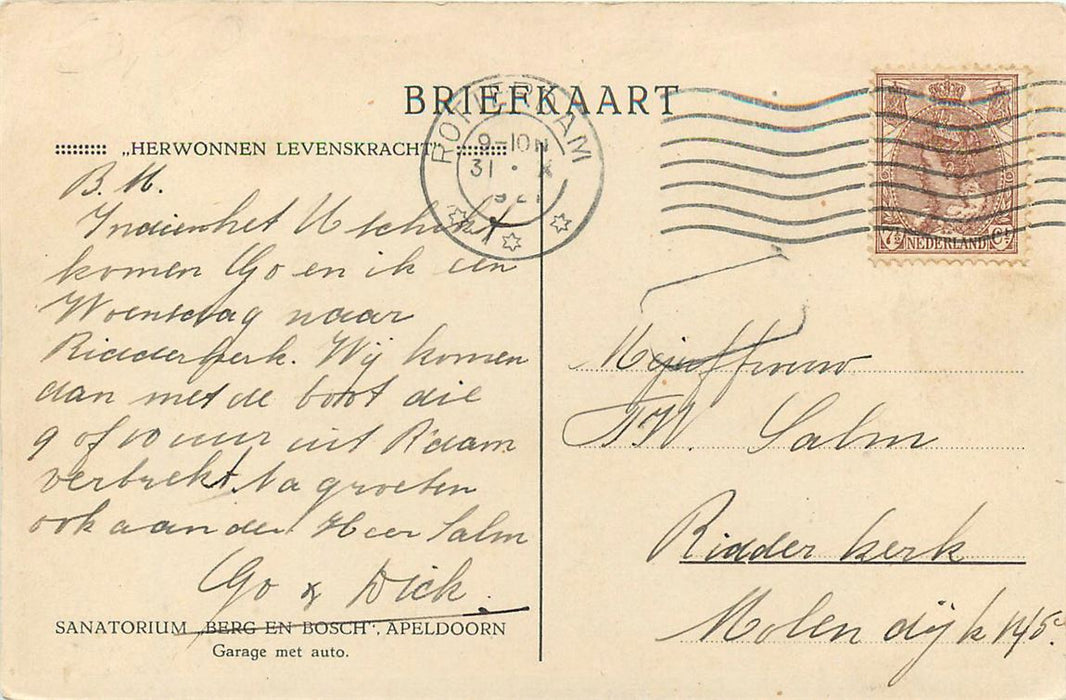 BRIEFKAART
„HERWONNEN LEVENSKRACHT"
ROTTERDAM
9-10 N
31 . X
1921
7½ NEDERLAND Ct
B. M.
Indien het U schikt
komen Go en ik een
Woensdag naar
Ridderkerk. Wij komen
dan met de boot die
9 of 10 uur uit R'dam
vertrekt. Na groeten
ook aan den Heer Salm
Go & Dick.
SANATORIUM „BERG EN BOSCH", APELDOORN
Garage met auto.
Mejuffrouw
W. Salm
Ridderkerk
Molendijk